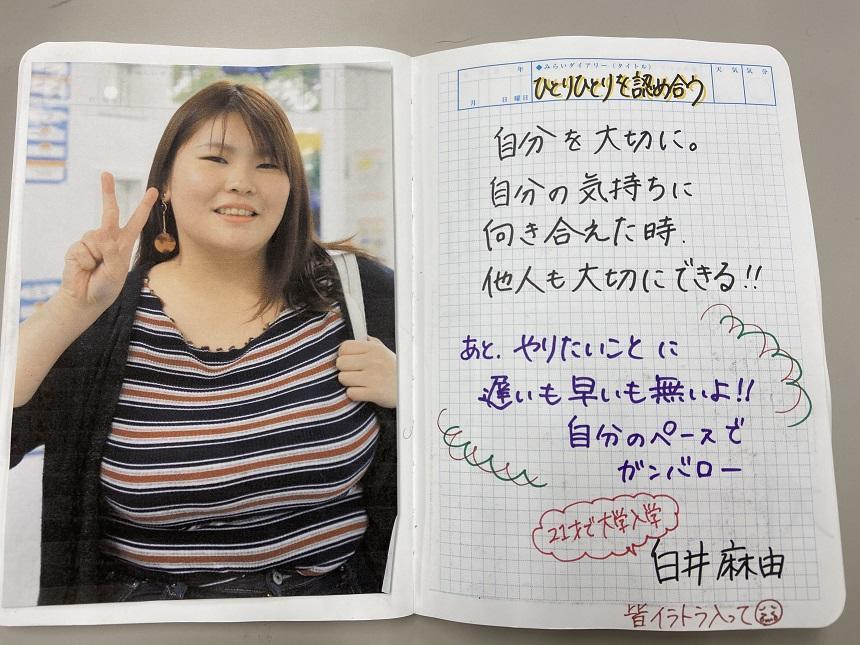 年
月 日 曜日
◆みらいダイアリー（タイトル）
天気 気分
ひとりひとりを認め合う
自分を大切に。
自分の気持ちに
向き合えた時、
他人も大切にできる!!
あと、やりたいことに
遅いも早いも無いよ!!
自分のペースで
ガンバロー
21才で大学入学
白井麻由
皆イラトラ入って